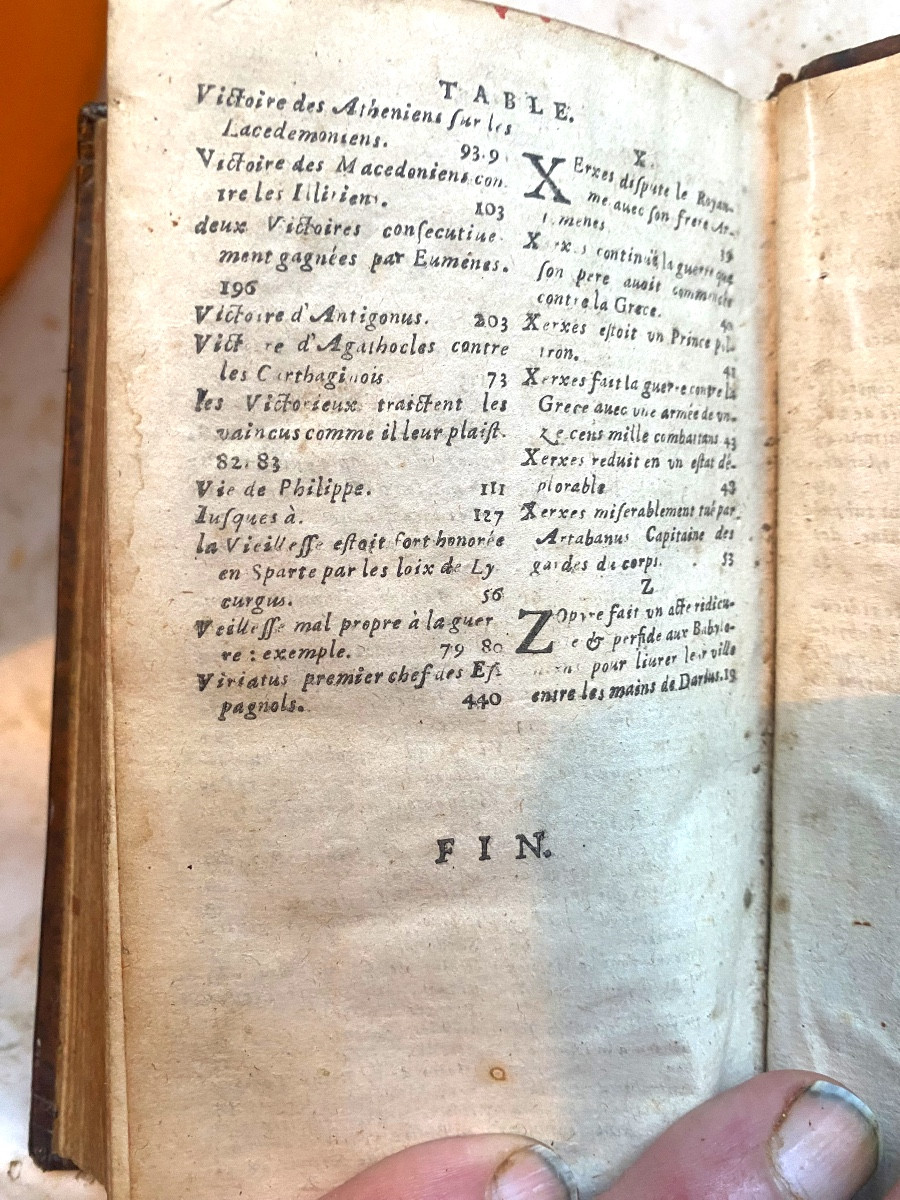 TABLE.
Victoire des Atheniens sur les
Lacedemoniens. 93.9
Victoire des Macedoniens con
tre les Illiriens. 103
deux Victoires consecutiue
ment gagnées par Euménes.
196
Victoire d'Antigonus. 203
Vict re d'Agathocles contre
les Carthaginois 73
les Victorieux traictent les
vaincus comme il leur plaist.
82. 83
Vie de Philippe. 111
Iusques à. 127
la Vieillesse estoit fort honorée
en Sparte par les loix de Ly
curgus. 56
Veillesse mal propre à la guer
re : exemple. 79 80
Viriatus premier chef des Es
pagnols. 440
X.
XErxes dispute le Royau-
me auec son frere Ar-
menes
Xerxes continuë la guerre que
son pere auoit commencée
contre la Grece. 40
Xerxes estoit vn Prince pol
tron. 41
Xerxes fait la guerre contre la
Grece auec vne armée de vn-
ze cens mille combattans 43
Xerxes reduit en vn estat dé-
plorable 48
Xerxes miserablement tué par
Artabanus Capitaine des
gardes du corps. 53
Z
ZOpyre fait vn acte ridicu-
e & perfide aux Babylo-
niens pour liurer leur ville
entre les mains de Darius. 19
FIN.